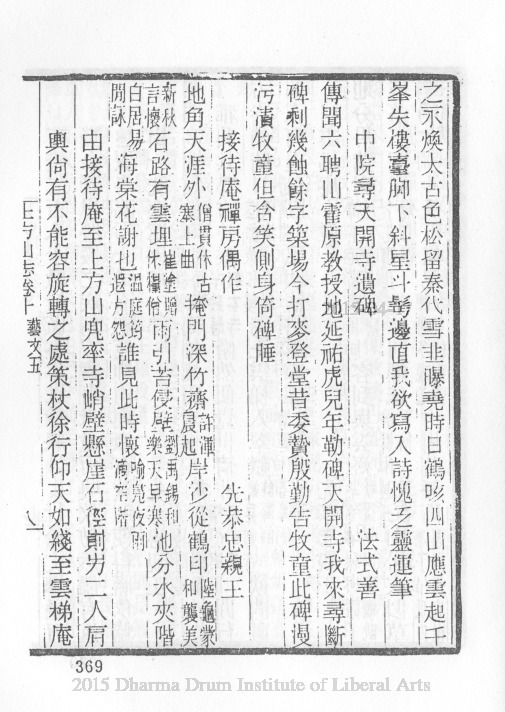 之永煥太古色松留秦代雪韭曝堯時日鶴咳四山應雲起千
峯失樓臺脚下斜星斗髩邊直我欲寫入詩愧乏靈運筆
中院尋天開寺遺碑 法式善
傳聞六聘山霍原教授地延祐虎兒年勒碑天開寺我來尋斷
碑剩幾蝕餘字築場今打麥登堂昔委贄殷勤告牧童此碑漫
污漬牧童但含笑側身倚碑睡
接待庵禪房偶作 先恭忠親王
地角天涯外僧貫休古塞上曲掩門深竹齋許渾晨起岸沙從鶴印陸龜蒙和襲美
新秋言懷石路有雲埋崔塗贈休糧僧雨引苔侵壁劉禹錫和樂天早寒池分水夾階
白居易閒詠海棠花謝也溫庭筠遐方怨誰見此時裏喻鳧夜雨滴空階
由接待庵至上方山兜率寺峭壁懸崖石徑剛另二人肩
輿尙有不能容旋轉之處策杖徐行仰天如綫至雲梯庵
上方山志卷十 藝文五 八
369
2015 Dharma Drum Institute of Liberal Arts